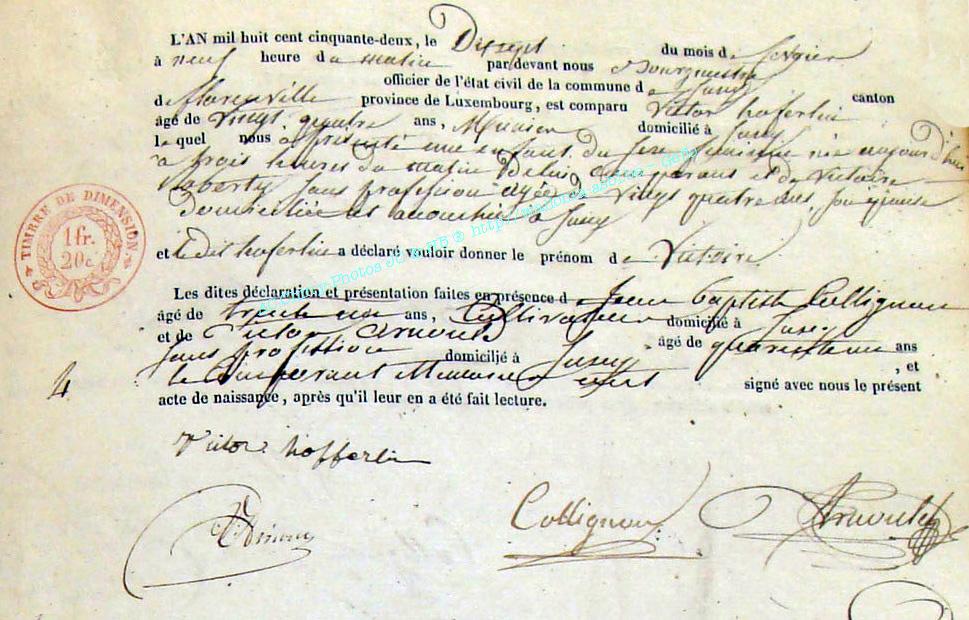 L'AN mil huit cent cinquante-deux, le Dix sept du mois de fevrier
à neuf heure du matin par devant nous Bourgmestre
officier de l'état civil de la commune de Jamoigne canton
de florenville province de Luxembourg, est comparu Victor hofferlin
âgé de Vingt quatre ans, Meunier domicilié à
le quel nous a présenté une enfant du sexe feminin née aujourd'hui
à trois heures du matin de lui Comparant et de Victoire
Roberty Sans profession agée de Vingt quatre ans, son épouse
Domiciliée et accouchée à
et ledit hofferlin a déclaré vouloir donner le prénom de Victoire
Les dites déclaration et présentation faites en présence de Jean Baptiste Collignon
âgé de trente ans, Cultivateur domicilié à
et de Victor Arnould âgé de quarante ans
sans profession domicilié à , et
le Comparant et témoins ont signé avec nous le présent
acte de naissance, après qu'il leur en a été fait lecture.
4
TIMBRE DE DIMENSION
1 fr.
20c
Victor hofferlin
Collignon
Arnould